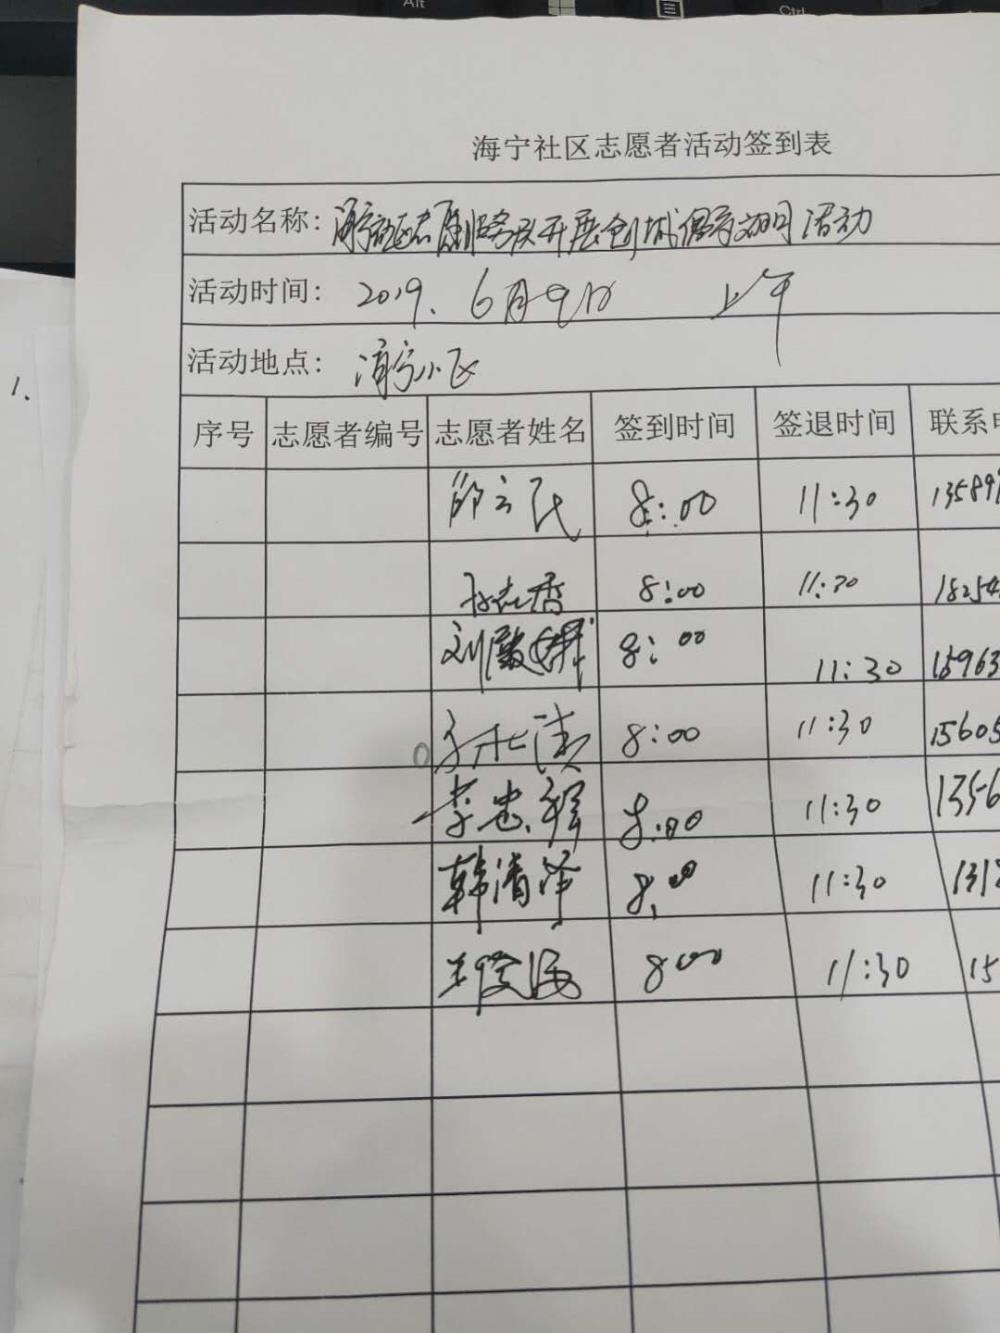 Alt
Ctrl
1.
海宁社区志愿者活动签到表
活动名称: 海宁社区志愿服务队开展创城倡导文明活动
活动时间: 2019. 6月9日 上午
活动地点: 海宁小区
序号 志愿者编号 志愿者姓名 签到时间 签退时间 联系电
云民 8:00 11:30 13589
香 8:00 11:30 18254
刘 8:00 11:30 15963
8:00 11:30 15605
李忠 8:00 11:30 1356
韩清泽 8:00 11:30 131
海 800 11:30 15